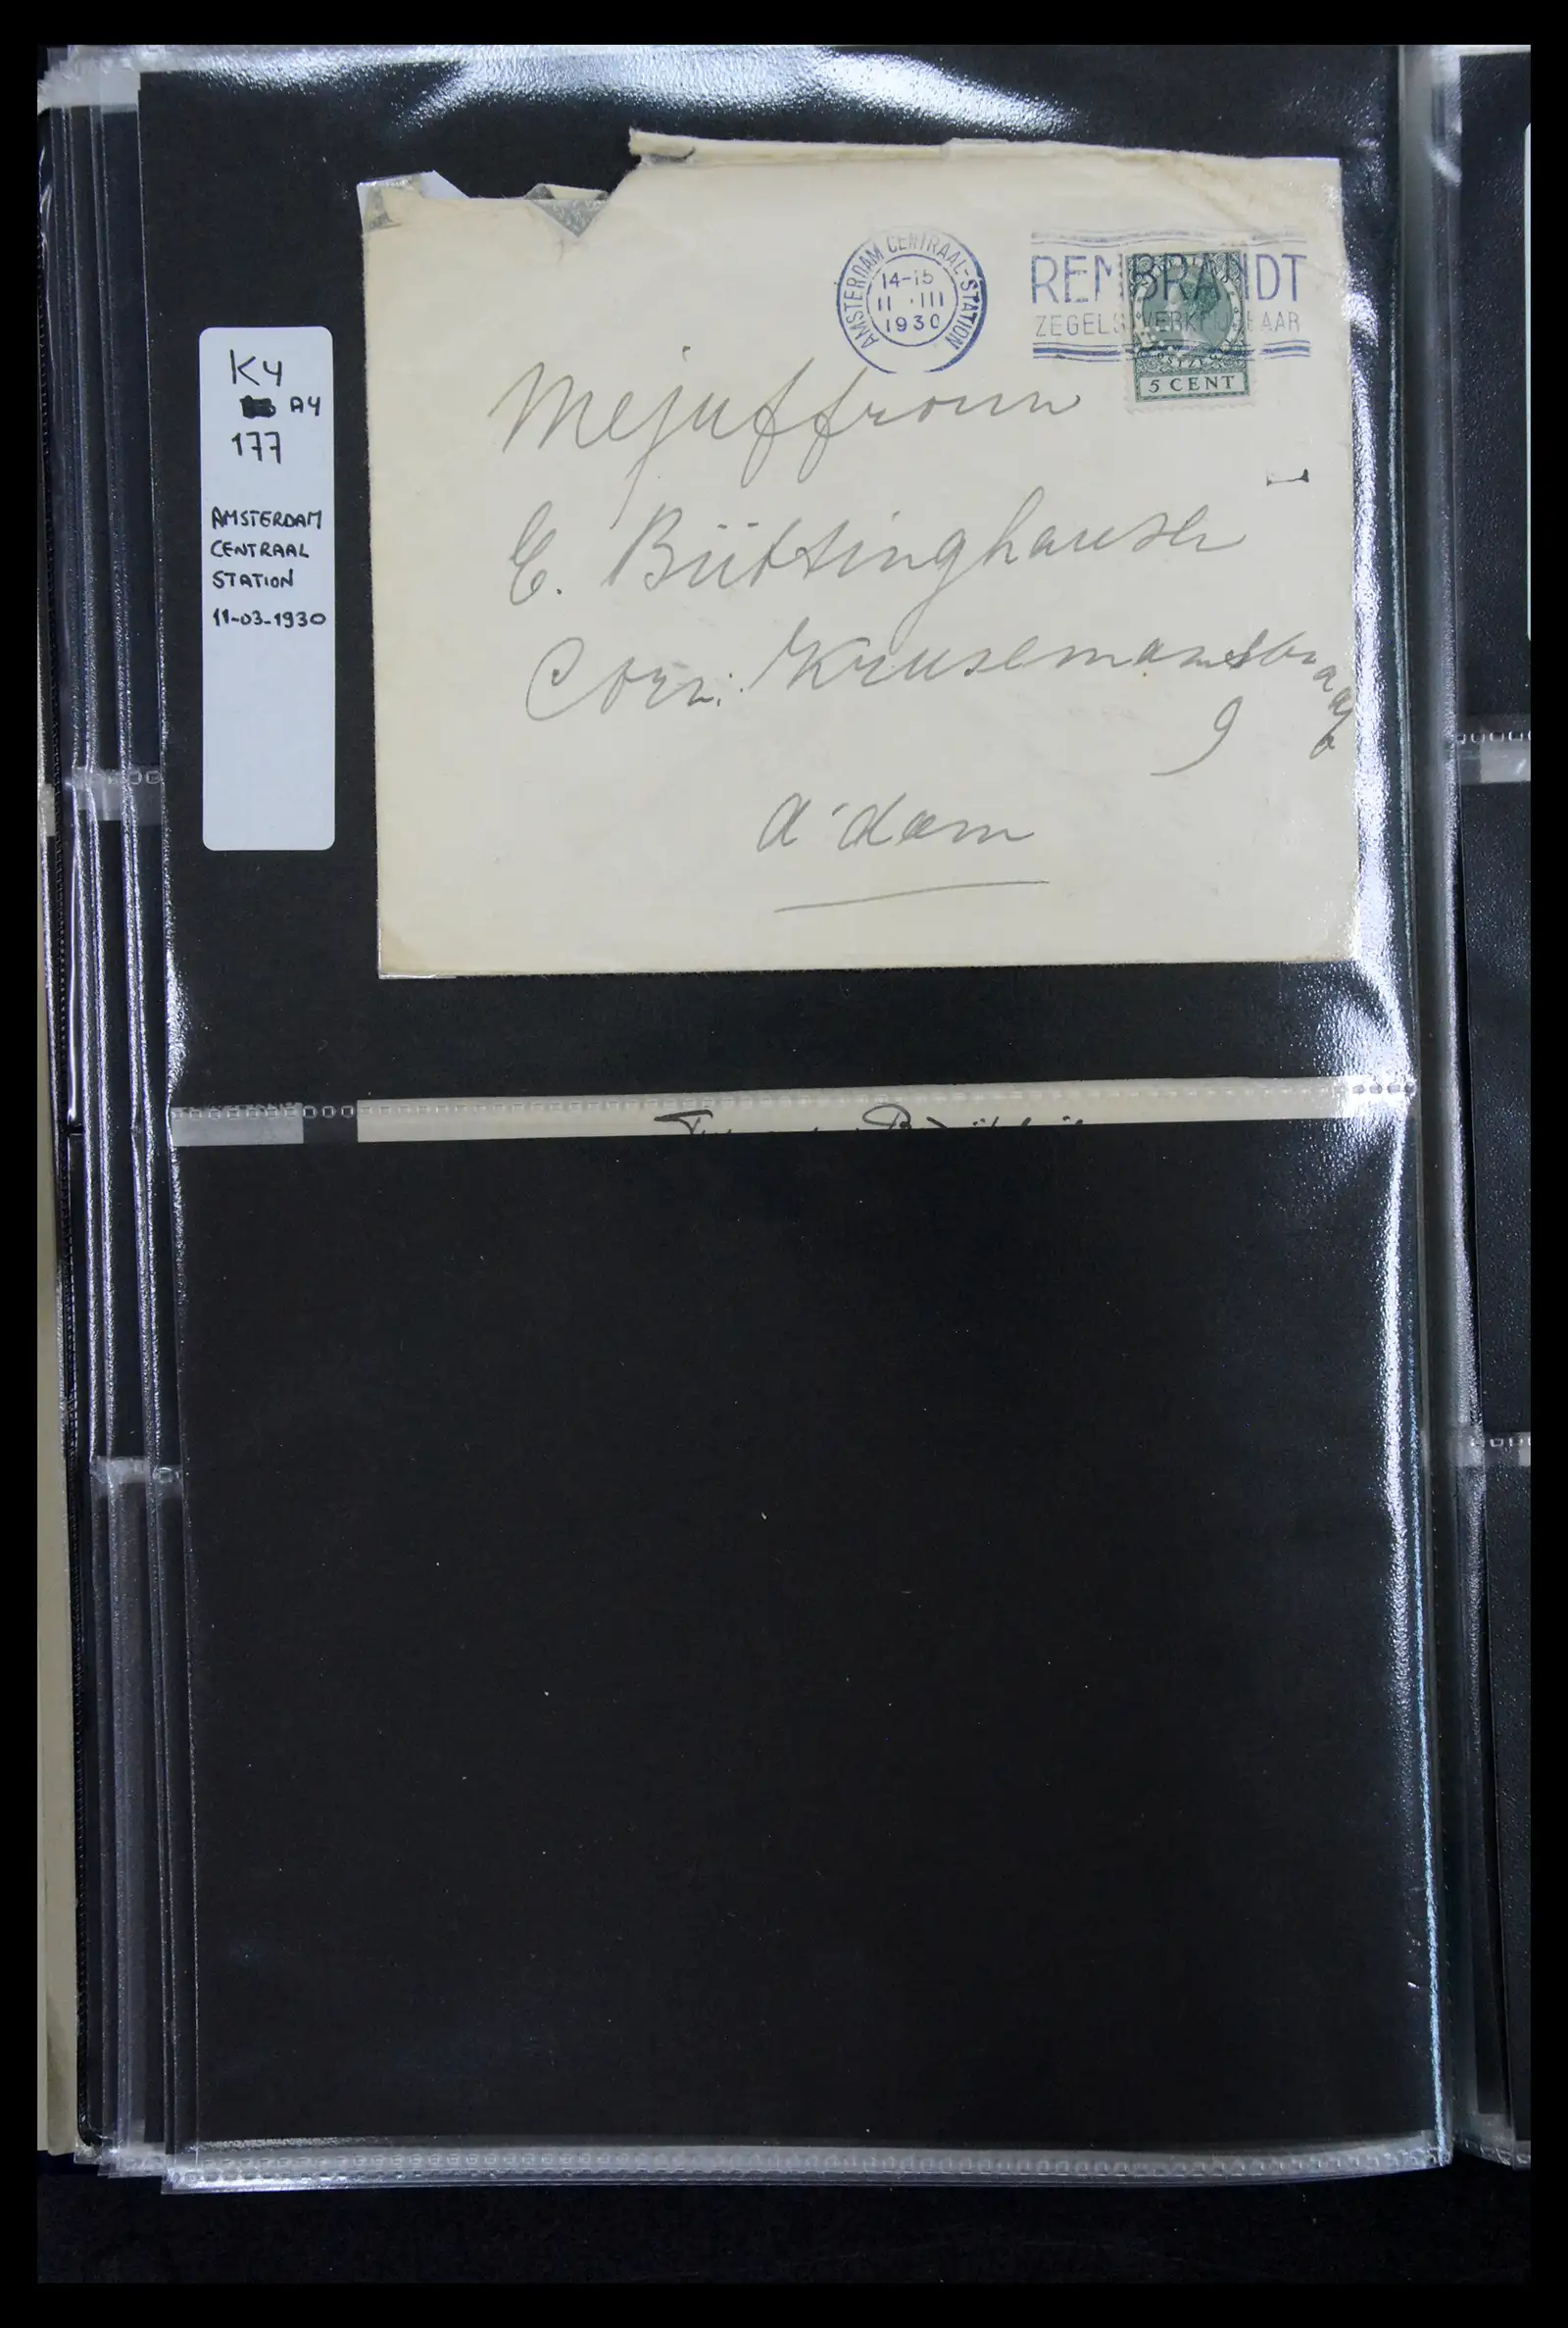 K4
A4
177
AMSTERDAM
CENTRAAL
STATION
11-03-1930
AMSTERDAM CENTRAAL-STATION
14-15
11 III
1930
REMBRANDT
ZEGELS VERKRIJGBAAR
5 CENT
Mejuffrouw
E. Büttinghausen
Corn: Krusemanstraat
9
A'dam